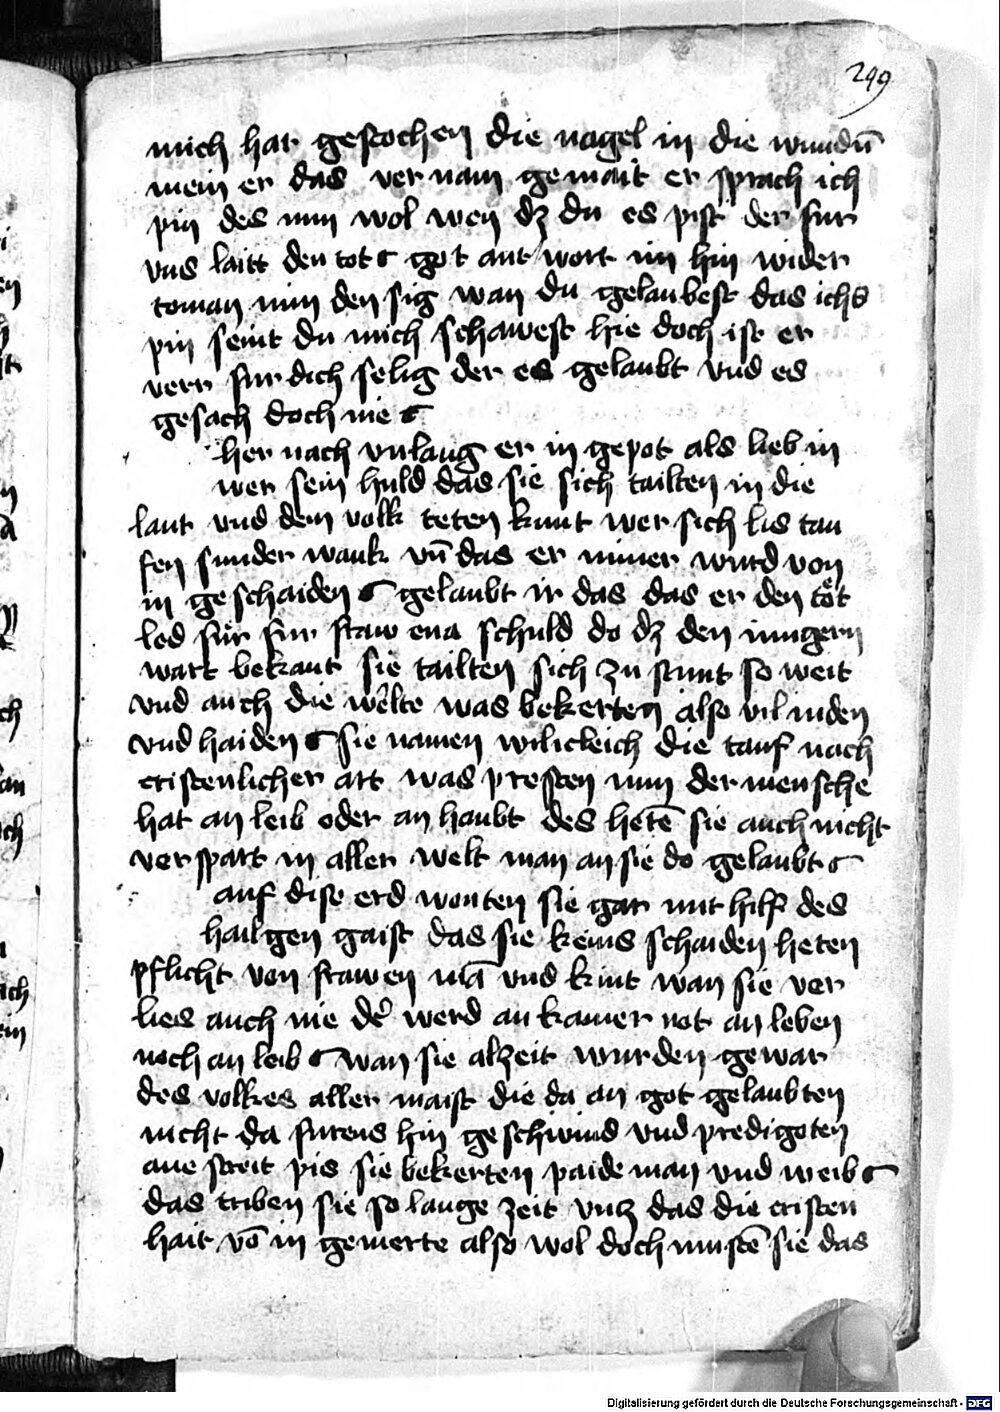 299
mich hat gestochen die nagel in die wundn̄
mein er das ver nam gemait er sprach ich
pin des nun wol wen dz du es pist der fur
vns laitt den tot got ant wort im hin wider
toman nim den sig wan du gelaubest das ichs
pin seint du mich schawest hie doch ist er
verr fur dich selig der es gelaubt vnd es
gesach doch nie
her nach vnlang er in gepot als lieb in
wer sein huld das sie sich tailten in die
lant vnd dem volk teten kunt wer sich lis tau
fen sunder wank vn̄ das er nimer wurd von
in geschaiden gelaubt ir das das er den tot
led fur fur fraw eua schuld do dz den iungern
wart bekant sie tailten sich zu stunt so weit
vnd auch die welte was bekerten also vil iuden
vnd haiden sie namen wilicleich die tauf nach
cristenlicher art was presten nun der mensche
hat an leib oder an haubt des hetē sie auch nicht
verspart in aller welt man an sie do gelaubt
auf dise erd wonten sie gar mit hilf des
hailgen gaist das sie keins schaiden heten
pflicht von frawen mā vnd kint wan sie ver
lies auch nie der werd an kainer not an leben
noch an leib wan sie alzeit wurden gewar
des volkes aller maist die da an got gelaubten
nicht da furens hin geschwind vnd predigoten
ane streit pis sie bekerten paide man vnd weib
das triben sie so lange zeit vnz das die cristen
hait vō in gemerte also wol doch mustē sie das
Digitalisierung gefördert durch die Deutsche Forschungsgemeinschaft - DFG